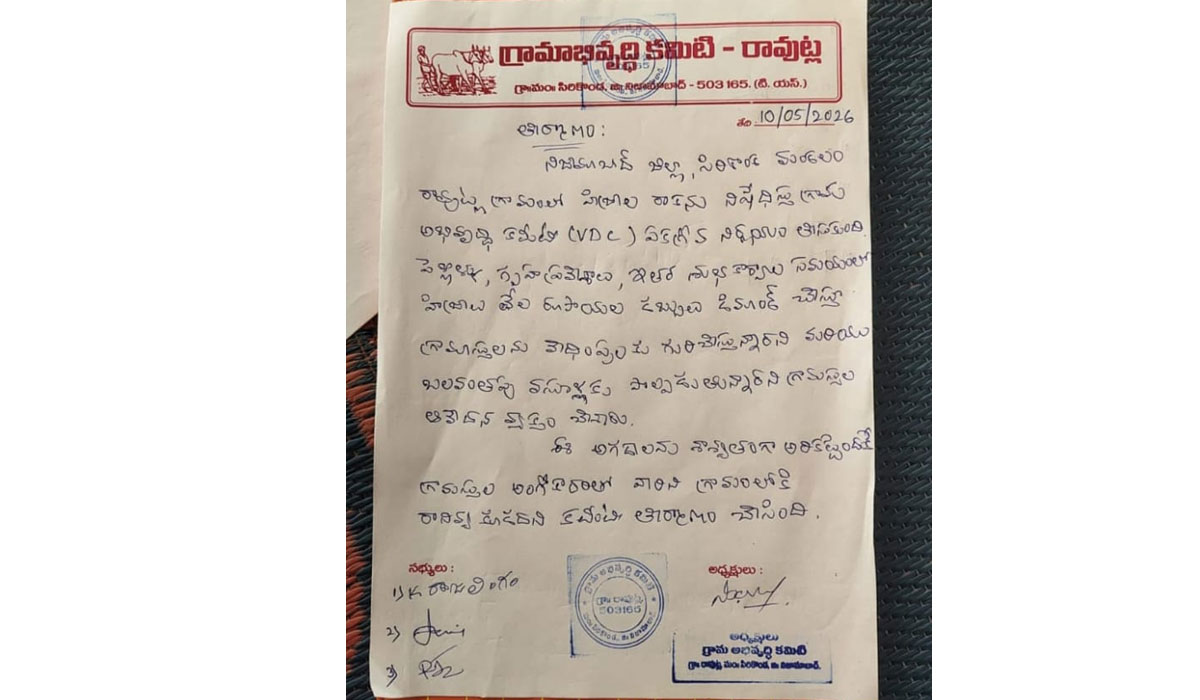 గ్రామాభివృద్ధి కమిటి - రావుట్ల
గ్రా॥మం॥ సిరికొండ, జి॥ నిజామాబాద్ - 503 165. (టి. యస్.)
తేది 10/05/2026
తీర్మానం :
నిజామాబాద్ జిల్లా, సిరికొండ మండలం
రావుట్ల గ్రామంలో హిజ్రాల రాకను నిషేధిస్తూ గ్రామ
అభివృద్ధి కమిటీ (VDC) ఏకగ్రీవ నిర్ణయం తీసుకుంది.
పెళ్ళిళ్లు, గృహప్రవేశాలు, ఇతర శుభకార్యాల సమయంలో
హిజ్రాలు వేల రూపాయల డబ్బులు డిమాండ్ చేస్తూ
గ్రామస్తులను వేధింపులకు గురిచేస్తున్నారని మరియు
బలవంతపు వసూళ్లకు పాల్పడుతున్నారని గ్రామస్తుల
ఆవేదన వ్యక్తం చేశారు.
ఈ ఆగడాలను శాశ్వతంగా అరికట్టేందుకే
గ్రామస్తుల అంగీకారంతో వారిని గ్రామంలోకి
రానివ్వకూడదని కమిటీ తీర్మానం చేసింది.
సభ్యులు :
అధ్యక్షులు :
1) K రాజలింగం
2)
3)
గ్రామ అభివృద్ధి కమిటి
గ్రా॥ రావుట్ల
503165
మం॥ సిరికొండ, జి॥ నిజామాబాద్
అధ్యక్షులు
గ్రామ అభివృద్ధి కమిటి
గ్రా॥ రావుట్ల మం॥ సిరికొండ జి॥ నిజామాబాద్.